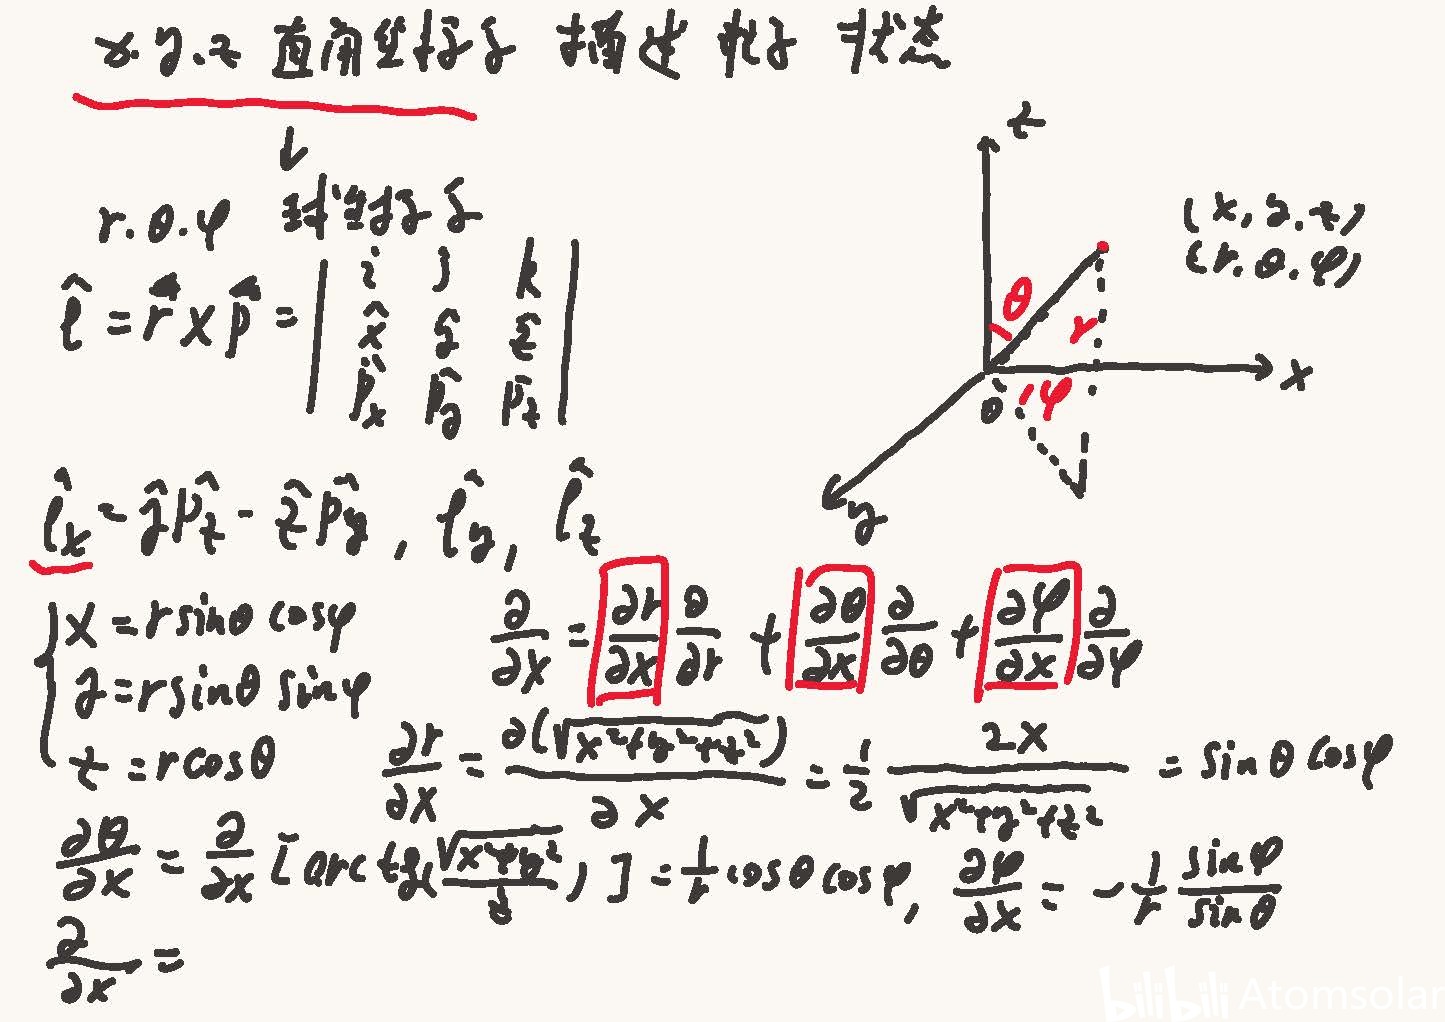 x.y.z 直角坐标系 描述 粒子 状态
↓
r.θ.φ 球坐标系
z
(x,y,z)
(r.θ.φ)
θ r
0 φ x
y
l̂ = r⃗ × p⃗ = | i j k |
| x̂ ŷ ẑ |
| p̂x p̂y p̂z |
l̂x = ŷp̂z - ẑp̂y , l̂y, l̂z
{ x = rsinθ cosφ
y = rsinθ sinφ
z = rcosθ
∂/∂x = ∂r/∂x ∂/∂r + ∂θ/∂x ∂/∂θ + ∂φ/∂x ∂/∂φ
∂r/∂x = ∂(√(x²+y²+z²))/∂x = 1/2 2x/√(x²+y²+z²) = sinθ cosφ
∂θ/∂x = ∂/∂x [arctg(√(x²+y²)/z)] = 1/r cosθ cosφ, ∂φ/∂x = -1/r sinφ/sinθ
∂/∂x =
bilibili Atomsolar